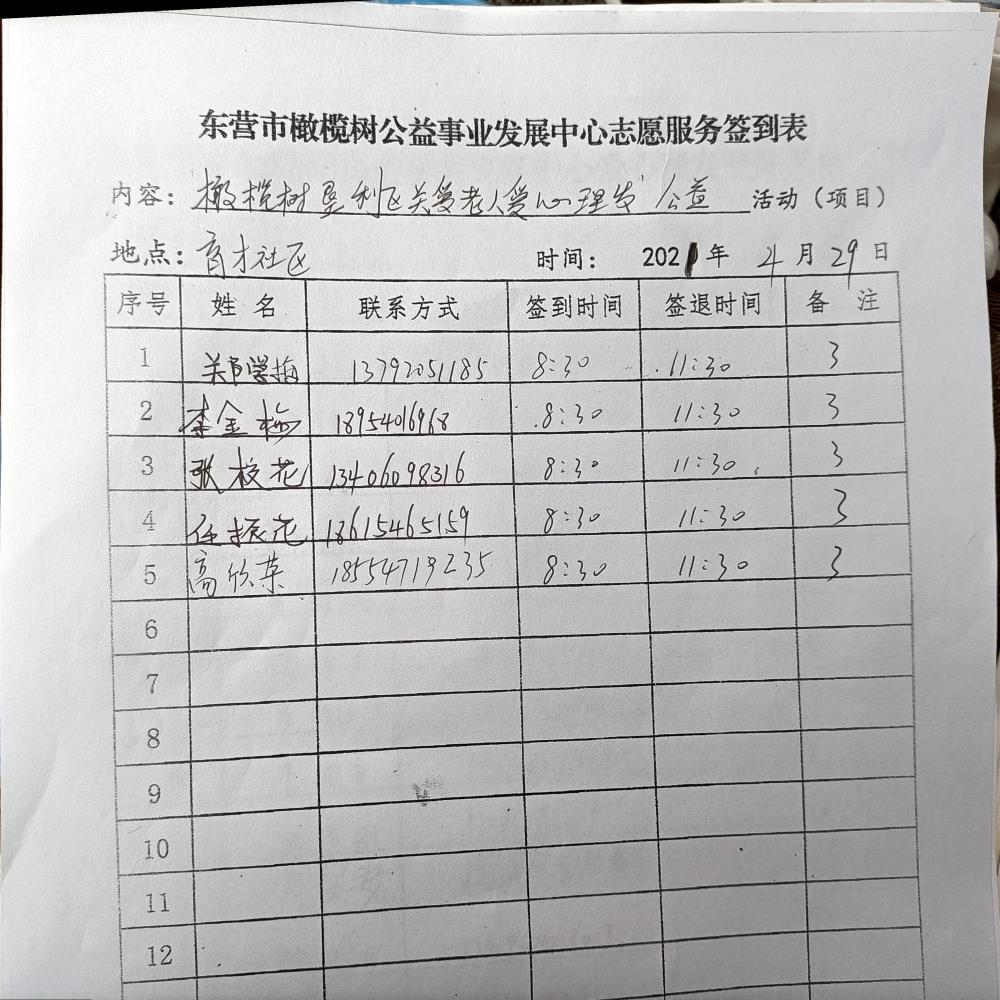 东营市橄榄树公益事业发展中心志愿服务签到表
内容：橄榄树垦利区关爱老人爱心理发公益活动（项目）
地点：育才社区 时间： 2021年 4月29日
序号 姓名 联系方式 签到时间 签退时间 备注
1 郑学梅 13792051185 8:30 11:30 3
2 李金梅 18954016968 8:30 11:30 3
3 张校花 13406098316 8:30 11:30 3
4 任振花 18615465159 8:30 11:30 3
5 高欣荣 18554719235 8:30 11:30 3
6
7
8
9
10
11
12